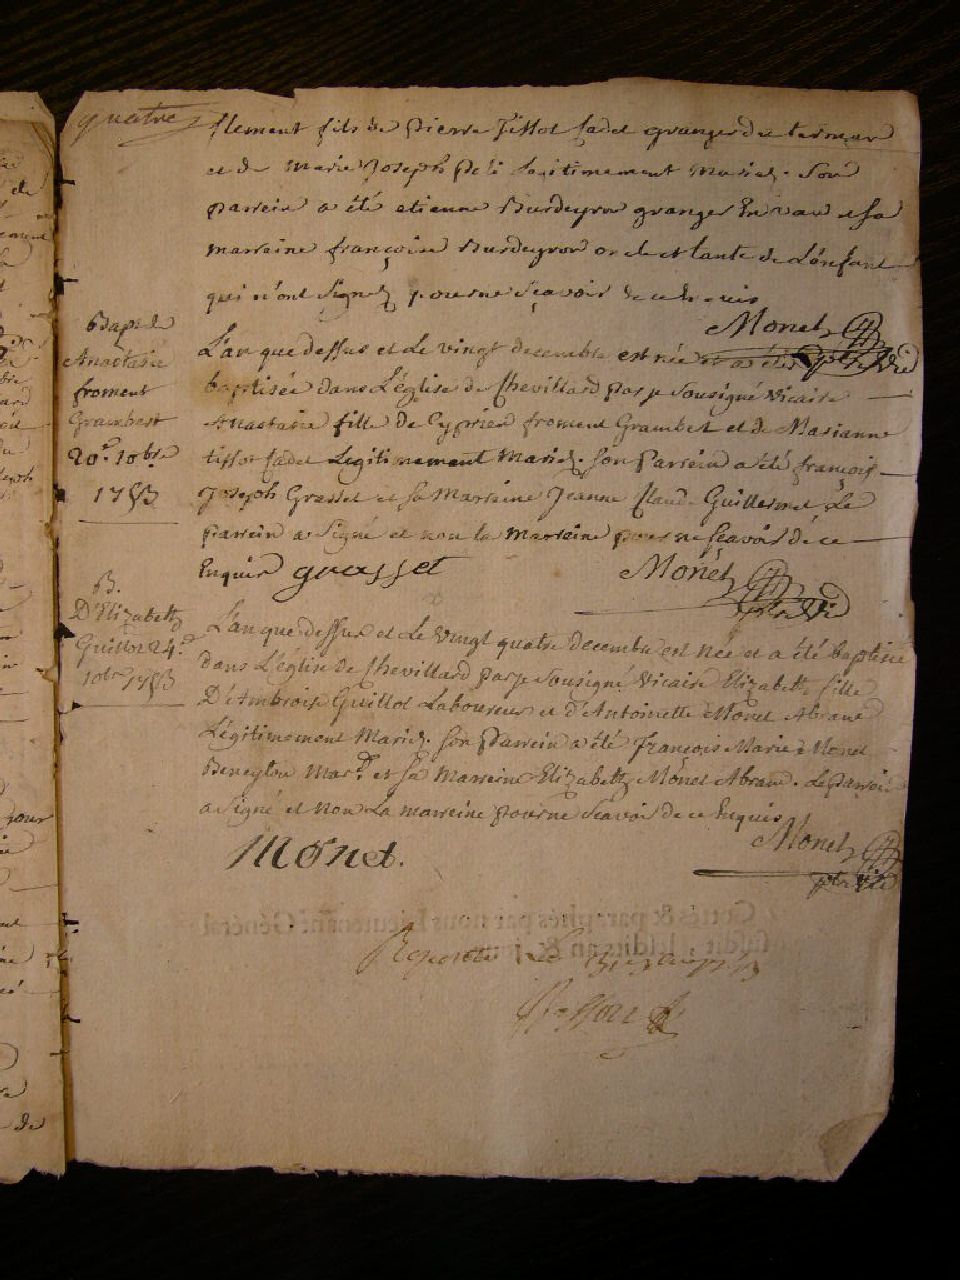 quatre
Clement fils de pierre Tissot Cadet granger de
et de marie Joseph légitimement mariez. Son
parrein a été etienne Burdeyron granger sa
marreine françoise Burdeyron tante de L'enfant
qui n'ont signez pour ne sçavoir de ce Enquis
Monet
Bapt. de
Anastasie
froment
Grambert
20e. 10bre
1753
L'an que dessus et Le vingt decembre est née et a été
baptisée dans L'église de Chevillard par Je Sousigné Vicaire
Anastasie fille de Cyprien froment Grambert et de Marianne
tissot Cadet Légitimement Mariez. son parrein a été françois
Joseph Grasset et sa Marreine Jeanne Claud. Guillermet Le
parrein a signé et non la marreine pour ne sçavoir de ce
Enquis grasset
Monet
B.
D'Elizabeth
Guillot 24e
10bre 1753
L'an que dessus et Le vingt quatre decembre est née et a été baptisée
dans L'église de Chevillard par Je Sousigné Vicaire Elizabeth fille
D'Ambroise Guillot Laboureur et d'Antoinette Monet Abram
Légitimement Mariez. son parrein a été François Marie Monet
Beneyton Mard. et sa marreine Elizabeth Monet Abram. Le parrein
a signé et non La marreine pour ne sçavoir de ce Enquis
Monet
Monet.
Cottés & paraphés par nous Lieutenant Général
susdit lesdits an & jour